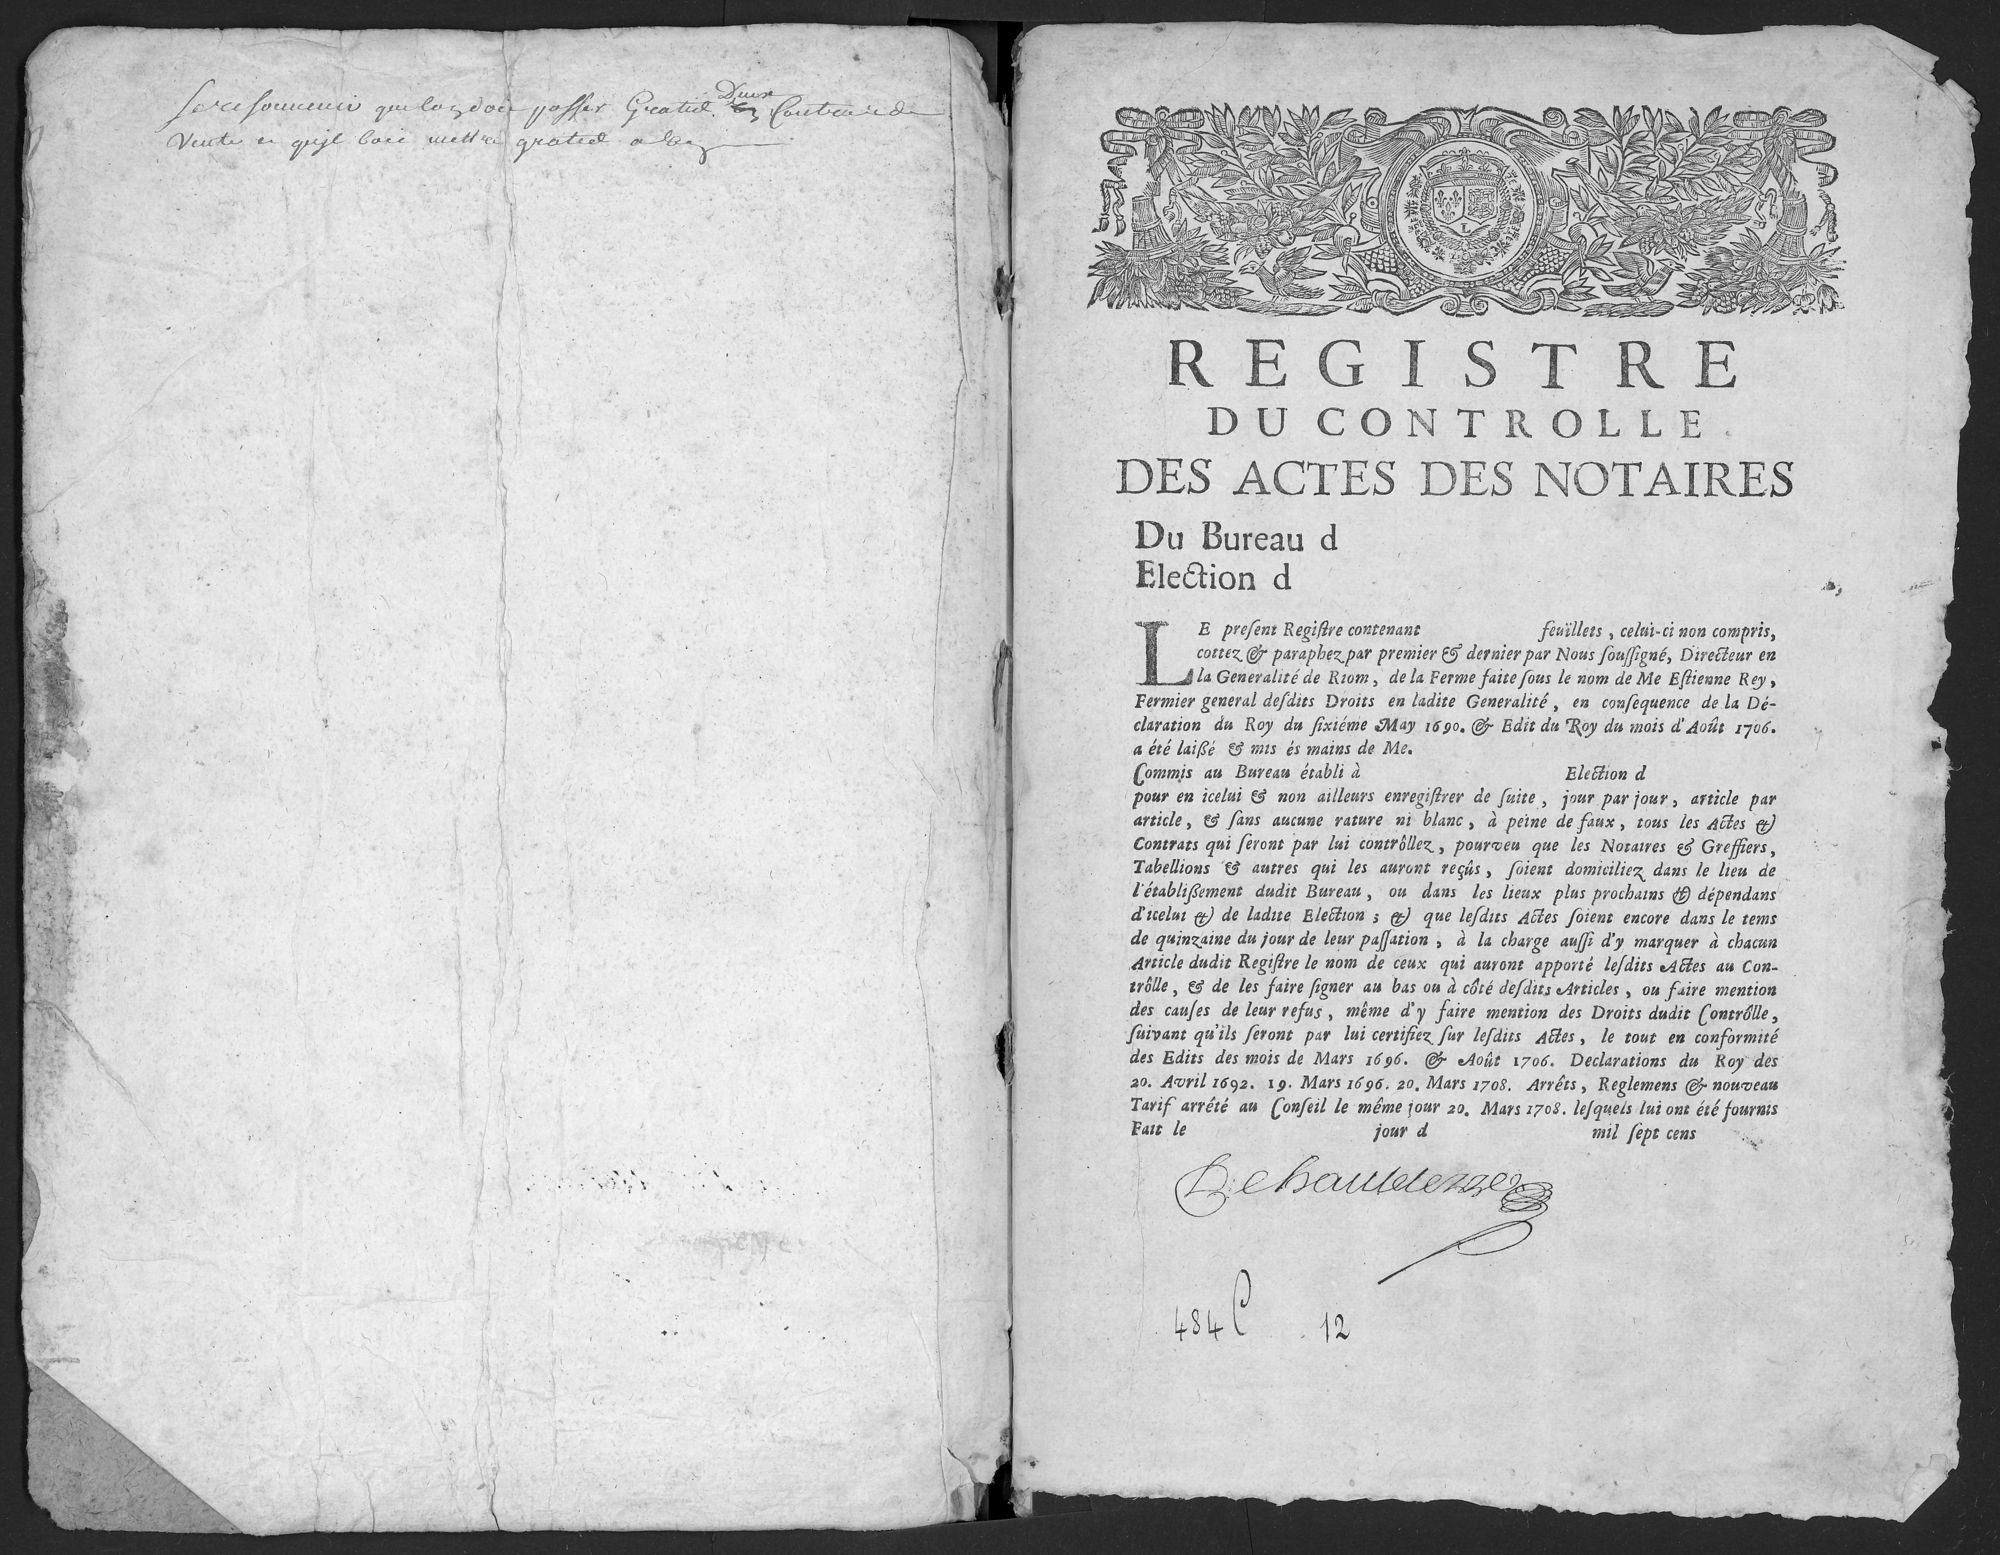 Se resouvenir que lon doit passer Gratis Deux Contrac de
Vente et quil faut mettre gratis a
REGISTRE
DU CONTROLLE
DES ACTES DES NOTAIRES
Du Bureau d
Election d
LE preſent Regiſtre contenant feuïllets, celui-ci non compris,
cottez & paraphez par premier & dernier par Nous ſouſſigné, Directeur en
la Generalité de Riom, de la Ferme faite ſous le nom de Me Eſtienne Rey,
Fermier general deſdits Droits en ladite Generalité, en conſequence de la Dé-
claration du Roy du ſixiéme May 1690. & Edit du Roy du mois d'Août 1706.
a été laißé & mis és mains de Me.
Commis au Bureau établi à Election d
pour en icelui & non ailleurs enregiſtrer de ſuite, jour par jour, article par
article, & ſans aucune rature ni blanc, à peine de faux, tous les Actes &
Contrats qui ſeront par lui contrôllez, pourveu que les Notaires & Greffiers,
Tabellions & autres qui les auront reçûs, ſoient domiciliez dans le lieu de
l'établißement dudit Bureau, ou dans les lieux plus prochains & dépendans
d'icelui & de ladite Election; & que leſdits Actes ſoient encore dans le tems
de quinzaine du jour de leur paſſation, à la charge auſſi d'y marquer à chacun
Article dudit Regiſtre le nom de ceux qui auront apporté leſdits Actes au Con-
trôlle, & de les faire ſigner au bas ou à côté deſdits Articles, ou faire mention
des cauſes de leur refus, même d'y faire mention des Droits dudit Contrôlle,
ſuivant qu'ils ſeront par lui certifiez ſur leſdits Actes, le tout en conformité
des Edits des mois de Mars 1696. & Août 1706. Declarations du Roy des
20. Avril 1692. 19. Mars 1696. 20. Mars 1708. Arrêts, Reglemens & nouveau
Tarif arrété au Conſeil le même jour 20. Mars 1708. leſquels lui ont été fournis
Fait le jour d mil ſept cens
484 C 12